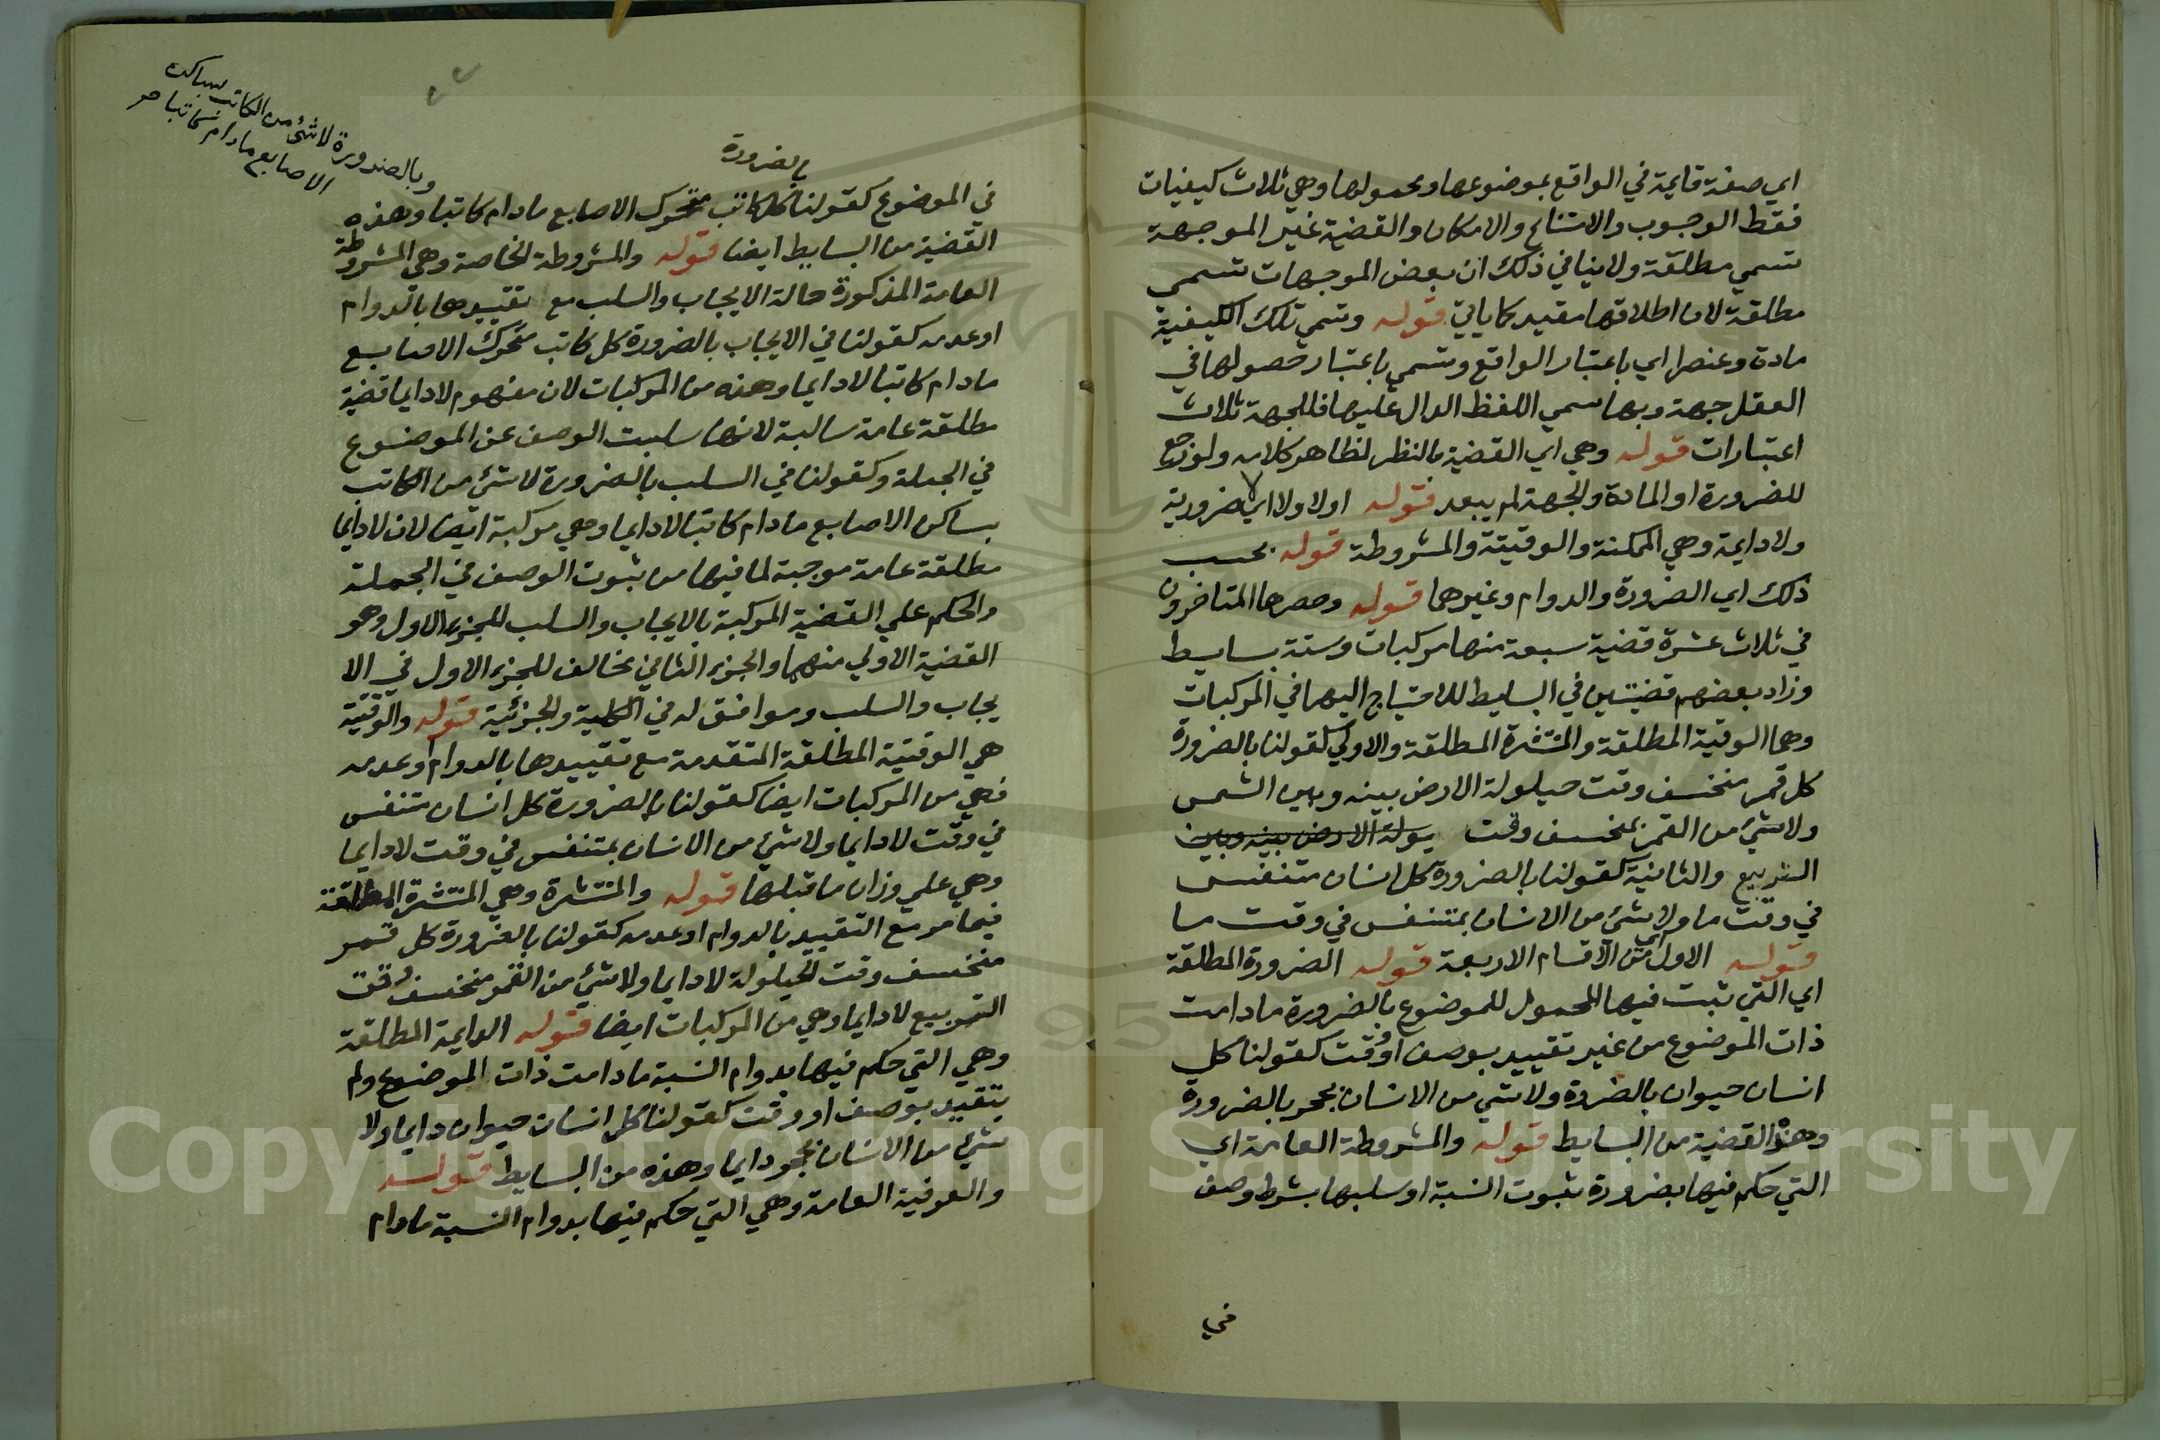 اي صفة قايمة في الواقع بموضوعها ومحمولها وهي ثلاث كيفيات
فقط الوجوب والامتناع والامكان والقضية غير الموجهة
تسمي مطلقة ولا ينافي ذلك ان بعض الموجهات تسمي
مطلقة لان اطلاقها مقيد كما ياتي قوله وتسمي تلك الكيفية
مادة وعنصرا اي باعتبار الواقع وتسمي باعتبار حصولها في
العقل جهة وبها سمي اللفظ الدال عليها فللجهة ثلاث
اعتبارات قوله وهي اي القضية بالنظر لظاهر كلامه ولو رجع
للضرورة او المادة والجهة لم يبعد قوله اولا ولا اي لا ضرورية
ولا دايمة وهي الممكنة والوقيتة والمشروطة قوله بحسب
ذلك اي الضرورة والدوام وغيرهما قوله وحصرها المتاخرون
في ثلاث عشرة قضية سبعة منها مركبات وستة بسايط
وزاد بعضهم قضيتين في البسايط للاحتياج اليهما في المركبات
وهما الوقتية المطلقة والمنتشرة المطلقة والاولي كقولنا بالضرورة
كل قمر منخسف وقت حيلولة الارض بينه وبين الشمس
ولا شيء من القمر بمنخسف وقت يولة الارض بينه وبين
التربيع والثانية كقولنا بالضرورة كل انسان متنفس
في وقت ما ولا شيء من الانسان بمتنفس في وقت ما
قوله الاول اي من الاقسام الاربعة قوله الضرورة المطلقة
اي التي ثبت فيها المحمول للموضوع بالضرورة مادامت
ذات الموضوع من غير تقييد بوصف او وقت كقولنا كل
انسان حيوان بالضروة ولا شي من الانسان بحجر بالضرورة
وهذه القضية من البسايط قوله والمشروطة العامة اي
التي حكم فيها بضرورة ثبوت النسبة او سلبها بشرط وصف
في
وبالضرورة لا شيء من الكاتب بساكن
الاصابع مادام كاتبا صر
بالضرورة
في الموضوع كقولنا كل كاتب متحرك الاصابع مادام كاتبا وهذه
القضية من البسايط ايضا قوله والمشروطة الخاصة وهي المشروطة
العامة المذكورة حالة الايجاب والسلب مع تقييدها بالدوام
او عدمه كقولنا في الايجاب بالضرورة كل كاتب متحرك الاصابع
مادام كاتبا لا دايما وهذه من المركبات لان مفهوم لا دايما قضية
مطلقة عامة سالبة لانها سلبت الوصف عن الموضوع
في الجملة وكقولنا في السلب بالضرورة لا شيء من الكاتب
بساكن الاصابع مادام كاتبا لا دايما وهي مركبة ايضا لان لا دايما
مطلقة عامة موجبة لما فيها من ثبوت الوصف في الجملة
والحكم علي القضية المركبة بالايجاب والسلب للجزء الاول وهو
القضية الاولي منهما والجزء الثاني مخالف للجزء الاول في الا
يجاب والسلب وموافق له في الكلية والجزئية قوله والوقتية
هي الوقتية المطلقة المتقدمة مع تقييدها بالدوام او عدمه
فهي من المركبات ايضا كقولنا بالضرورة كل انسان متنفس
في وقت لا دايما ولا شيء من الانسان بمتنفس في وقت لا دايما
وهي علي وزان ما قبلها قوله والمنتشرة وهي المنتشرة المطلقة
فيما مر مع التقييد بالدوام او عدمه كقولنا بالضرورة كل قمر
منخسف وقت الحيلولة لا دايما ولا شيء من القمر منخسف وقت
التربيع لا دايما وهي من المركبات ايضا قوله الدايمة المطلقة
وهي التي حكم فيها بدوام النسبة مادامت ذات الموضوع ولم
يتقييد بوصف او وقت كقولنا كل انسان حيوان دايما ولا
شيء من الانسان بحجر دايما وهذه من البسايط قوله
والعرفية العامة وهي التي حكم فيها بدوام النسبة مادام
Copyright © King Saud University